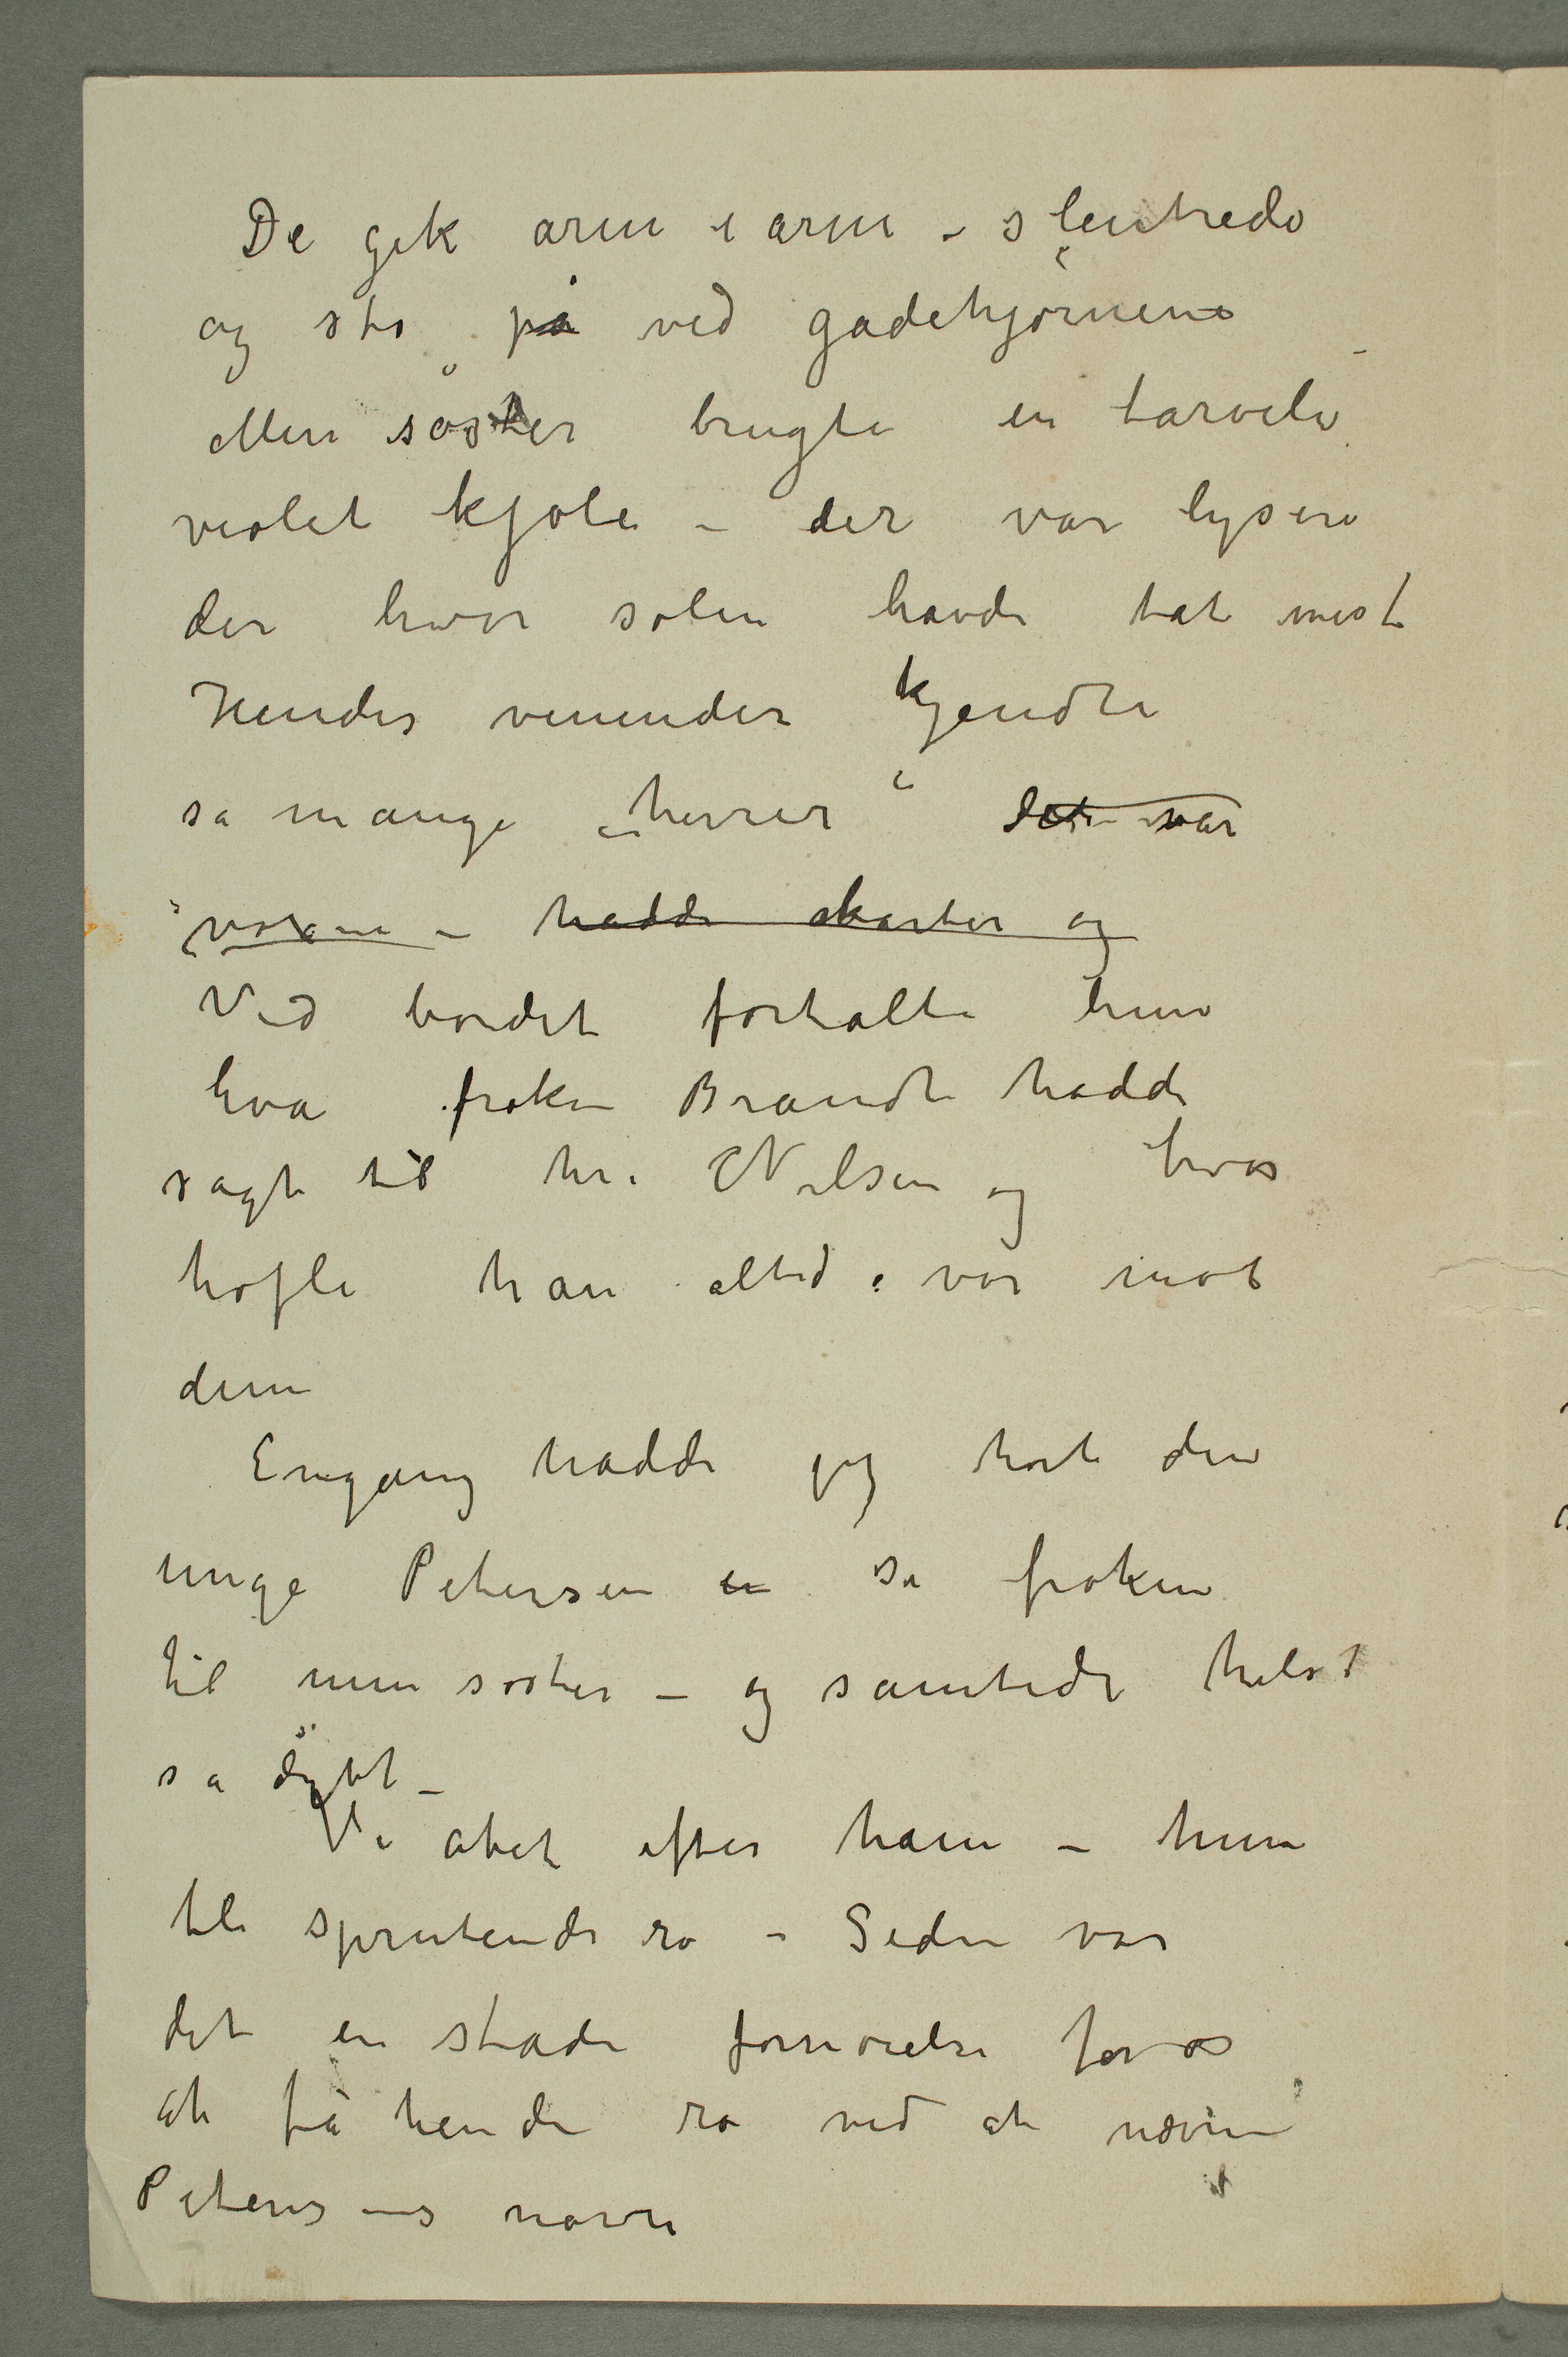 De gik arm i arm – slentrede
og sto på ved gadehjørnene
Min søster brugte en tarvele
violet kjole – der var lysere
der hvor solen havde tat mest
Hendes veninder kjendte
så mange „herrer“ det var
voxne – hadde skarter og
Ved bordet fortalte hun
hva frøken Brandt hadde
sagt til hr. Nilsen og hvor
høfli han altid var mot
dem
Engang hadde jeg hørt den
unge Petersen en si frøken
til min søster – og samtidi hilst
så dybt –
Vi abet efter ham – hun
ble sprutende rø – Siden var
det en stadi fornøielse for os
at få hende rø ved at nævne
Petersens navn